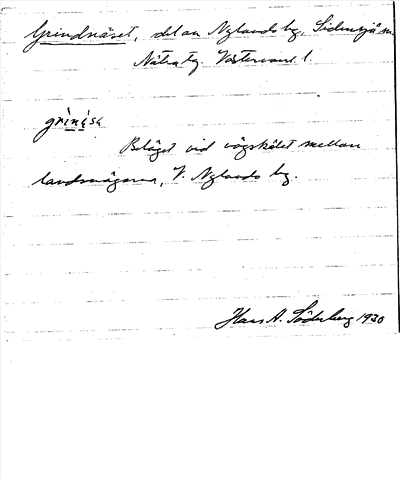 Grindnäset, del av Nylands by, Sidensjö sn.
Nätra tg. Västernorrl. l.
Beläget vid vägskälet mellan
landsvägarna, V. Nylands by.
Hans A. Söderberg 1930